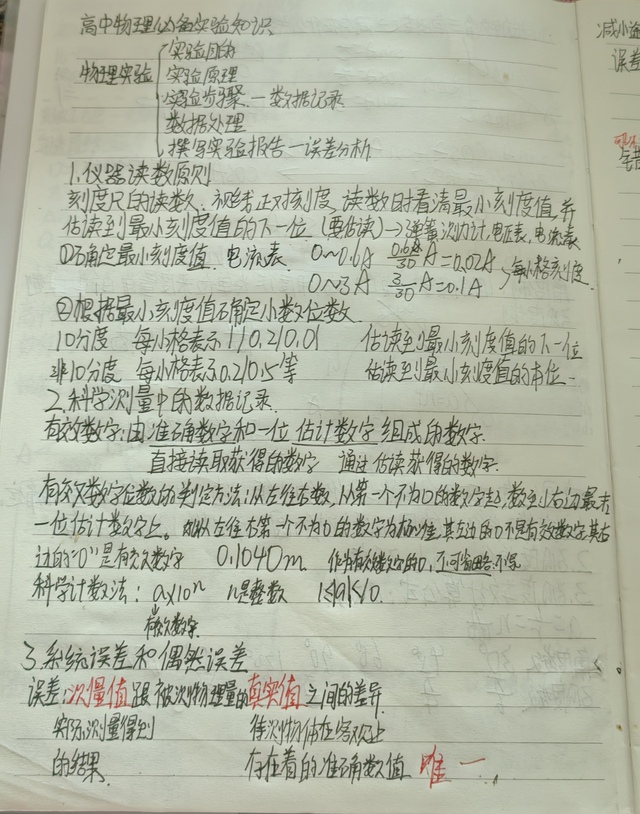 高中物理必备实验知识
物理实验
实验目的
实验原理
实验步骤 — 数据记录
数据处理
撰写实验报告 — 误差分析
1.仪器读数原则
刻度尺的读数 视线正对刻度,读数时看清最小刻度值,并
估读到最小刻度值的下一位(要估读)→弹簧测力计,电压表,电流表
①确定最小刻度值 电流表 0~0.6A 0.6A/30 A=0.02A
0~3A 3/30 A=0.1A 每小格刻度
②根据最小刻度值确定小数位数
10分度 每小格表示1/0.1/0.01 估读到最小刻度值的下一位
非10分度 每小格表示0.2/0.5/等 估读到最小刻度值的本位
2.科学测量中的数据记录
有效数字:由准确数字和一位估计数字组成的数字
直接读取获得的数字 通过估读获得的数字
有效数字位数的判定方法:从左往右数,从第一个不为0的数字起,数至右边最末
一位估计数字止。即从左往右第一个不为0的数字为标准,其左边的0不是有效数字,其右
边的"0"是有效数字 0.1040m 作为有效数字的0,不可省略不写
科学计数法: a×10ⁿ n是整数 1≤|a|<10
有效数字
3.系统误差和偶然误差
误差:测量值跟被测物理量的真实值之间的差异
实际测量得到 待测物体在客观上
的结果 存在着的准确数值 唯一
减小
误差